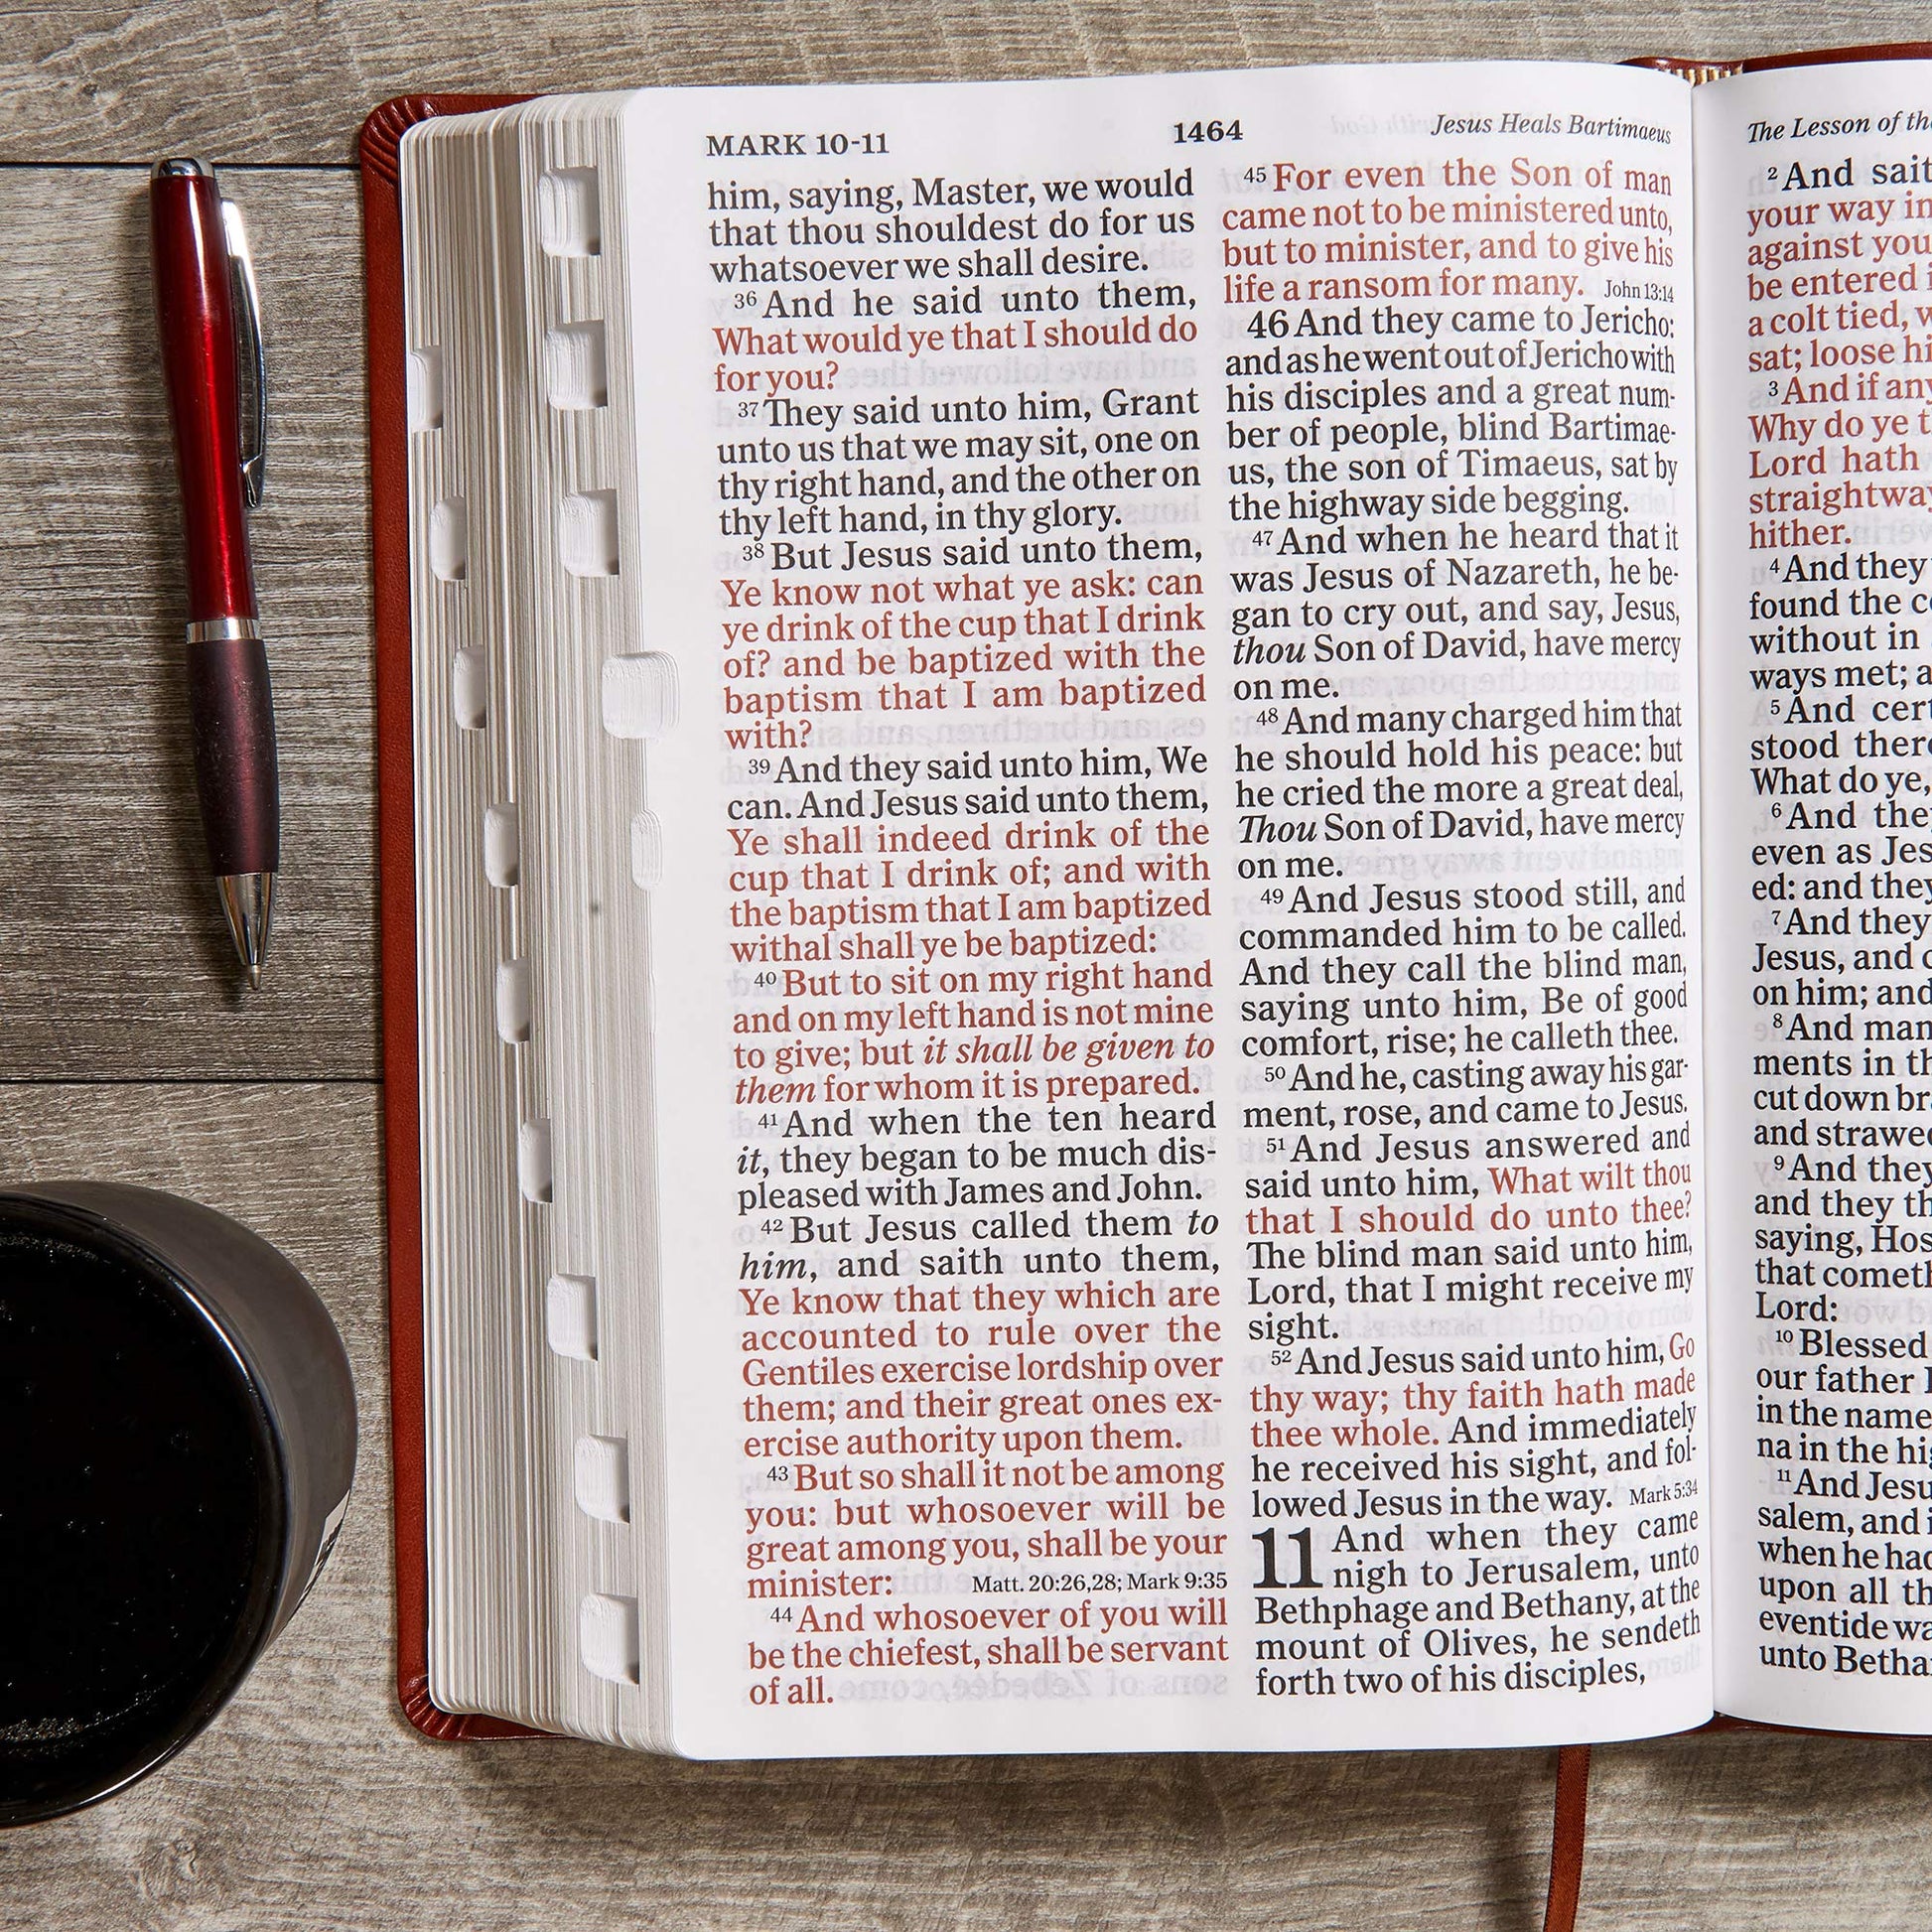 MARK 10-11
1464
Jesus Heals Bartimaeus
him, saying, Master, we would
that thou shouldest do for us
whatsoever we shall desire.
36 And he said unto them,
What would ye that I should do
for you?
37 They said unto him, Grant
unto us that we may sit, one on
thy right hand, and the other on
thy left hand, in thy glory.
38 But Jesus said unto them,
Ye know not what ye ask: can
ye drink of the cup that I drink
of? and be baptized with the
baptism that I am baptized
with?
39 And they said unto him, We
can. And Jesus said unto them,
Ye shall indeed drink of the
cup that I drink of; and with
the baptism that I am baptized
withal shall ye be baptized:
40 But to sit on my right hand
and on my left hand is not mine
to give; but it shall be given to
them for whom it is prepared.
41 And when the ten heard
it, they began to be much dis-
pleased with James and John.
42 But Jesus called them to
him, and saith unto them,
Ye know that they which are
accounted to rule over the
Gentiles exercise lordship over
them; and their great ones ex-
ercise authority upon them.
43 But so shall it not be among
you: but whosoever will be
great among you, shall be your
minister: Matt. 20:26,28; Mark 9:35
44 And whosoever of you will
be the chiefest, shall be servant
of all.
45 For even the Son of man
came not to be ministered unto,
but to minister, and to give his
life a ransom for many. John 13:14
46 And they came to Jericho:
and as he went out of Jericho with
his disciples and a great num-
ber of people, blind Bartimae-
us, the son of Timaeus, sat by
the highway side begging.
47 And when he heard that it
was Jesus of Nazareth, he be-
gan to cry out, and say, Jesus,
thou Son of David, have mercy
on me.
48 And many charged him that
he should hold his peace: but
he cried the more a great deal,
Thou Son of David, have mercy
on me.
49 And Jesus stood still, and
commanded him to be called.
And they call the blind man,
saying unto him, Be of good
comfort, rise; he calleth thee.
50 And he, casting away his gar-
ment, rose, and came to Jesus.
51 And Jesus answered and
said unto him, What wilt thou
that I should do unto thee?
The blind man said unto him,
Lord, that I might receive my
sight.
52 And Jesus said unto him, Go
thy way; thy faith hath made
thee whole. And immediately
he received his sight, and fol-
lowed Jesus in the way. Mark 5:34
11 And when they came
nigh to Jerusalem, unto
Bethphage and Bethany, at the
mount of Olives, he sendeth
forth two of his disciples,
The Lesson of
2 And
your way
against
be entered
a colt tied,
sat; loose
3 And if
Why do ye
Lord hath
hither.
4 And they
found the
without in
ways met;
5 And
stood
What do ye,
6 And
even as
ed: and
7 And they
Jesus, and
on him; and
8 And
ments in
cut down
and
9 And they
and they
saying,
that
Lord:
10 Blessed
our father
in the name
na in the
11 And
salem, and
when he had
upon all
eventide
unto